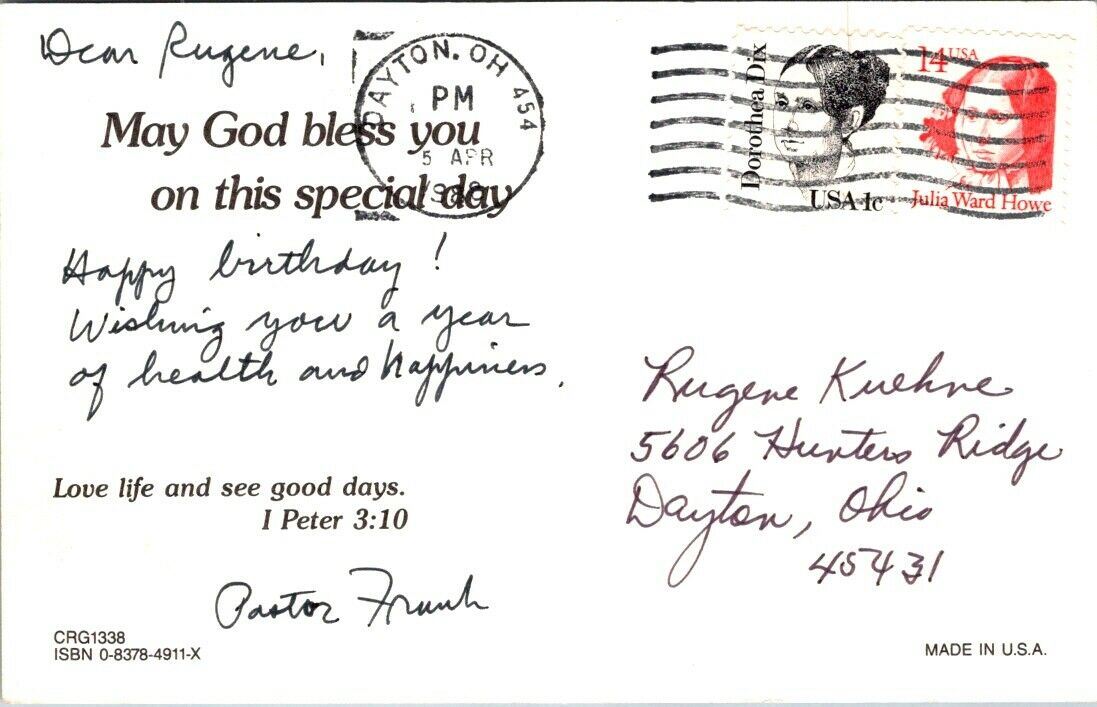 Dear Rugene,
May God bless you
on this special day
Happy birthday!
Wishing you a year
of health and happiness.
Love life and see good days.
I Peter 3:10
Pastor Frank
CRG1338
ISBN 0-8378-4911-X
DAYTON, OH 454
PM
5 APR
1988
Dorothea Dix
USA 1c
14 USA
Julia Ward Howe
Rugene Kuehne
5606 Hunters Ridge
Dayton, Ohio
45431
MADE IN U.S.A.